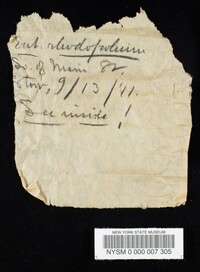 Ent. rhodopolium
So. of Main St.
Stow, 9/13/91.
See inside!
NEW YORK STATE MUSEUM
NYSM 0 000 007 305